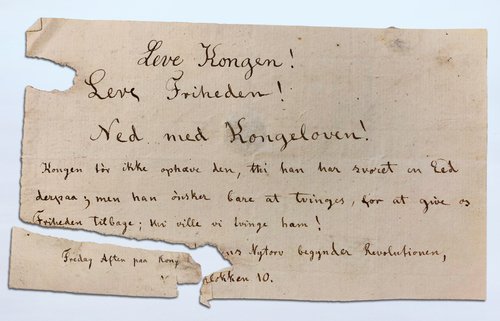 Leve Kongen!
Leve Friheden!
Ned med Kongeloven!
Kongen tör ikke ophæve den, thi han har svoret en Eed
derpaa; men han önsker bare at tvinges, for at give os
Friheden tilbage; thi ville vi tvinge ham!
Fredag Aften paa Kong ns Nytorv begynder Revolutionen,
lokken 10.